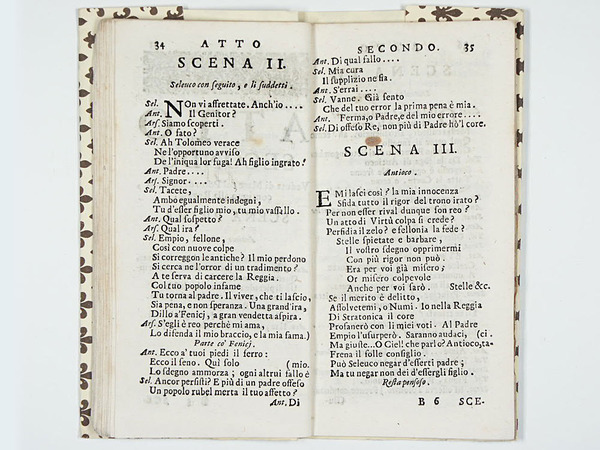 34 ATTO
SCENA II.
Seleuco con seguito, e li suddetti.
Sel. NOn vi affrettate. Anch'io....
Ant. Il Genitor?
Ars. Siamo scoperti.
Ant. O fato?
Sel. Ah Tolomeo verace
Ne l'opportuno avviso
De l'iniqua lor fuga! Ah figlio ingrato!
Ant. Padre....
Ars. Signor....
Sel. Tacete,
Ambo egualmente indegni,
Tu d'esser figlio mio, tu mio vassallo.
Ant. Qual sospetto?
Ars. Qual ira?
Sel. Empio, fellone,
Così con nuove colpe
Si correggon le antiche? Il mio perdono
Si cerca ne l'orror di un tradimento?
A te serva di carcere la Reggia.
Col tuo popolo infame
Tu torna al padre. Il viver, che ti lascio,
Sia pena, e non speranza. Una grand'ira,
Dillo a' Fenicj, a gran vendetta aspira.
Ars. S'egli è reo perchè mi ama,
Lo difenda il mio braccio, e la mia fama.)
Parte co' Fenicj.
Ant. Ecco a' tuoi piedi il ferro:
Ecco il seno. Quì solo (mio.
Lo sdegno ammorza; ogni altrui fallo è
Sel. Ancor persisti? E più di un padre offeso
Un popolo rubel merta il tuo affetto?
Ant. Di
SECONDO. 35
Ant. Di qual fallo....
Sel. Mia cura
Il supplizio ne sia.
Ant. S'errai....
Sel. Vanne. Già sento
Che del tuo error la prima pena è mia.
Ant. Ferma, o Padre, e del mio errore....
Sel. Di offeso Re, non più di Padre hò'l core.
SCENA III.
Antioco.
E Mi lasci così? la mia innocenza
Sfida tutto il rigor del trono irato?
Per non esser rival dunque son reo?
Un atto di Virtù colpa si crede?
Perfidia il zelo? e fellonia la fede?
Stelle spietate e barbare,
Il vostro sdegno opprimermi
Con più rigor non può.
Era per voi già misero;
Or misero colpevole
Anche per voi sarò. Stelle &c.
Se il merito è delitto,
Assolvetemi, o Numi. Io nella Reggia
Di Stratonica il core
Profanerò con li miei voti. Al Padre
Empio l'usurperò. Saranno audaci, (ci.
Ma giuste... O Ciel! che parlo? Antioco, ta-
Frena il folle consiglio.
Può Seleuco negar d'esserti padre;
Ma tu negar non dei d'essergli figlio.
Resta pensoso.
B 6 SCE-